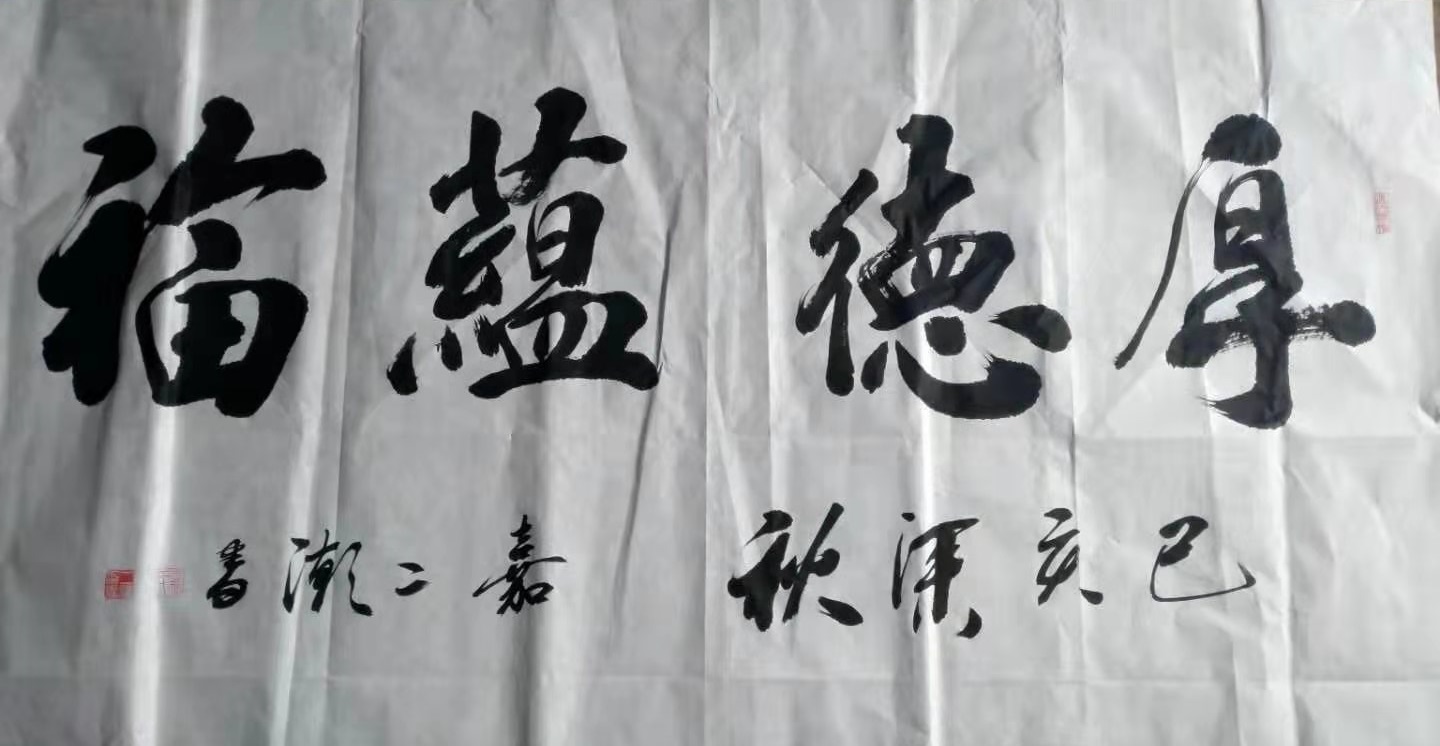 厚德蘊福
己亥深秋 嘉二潮書